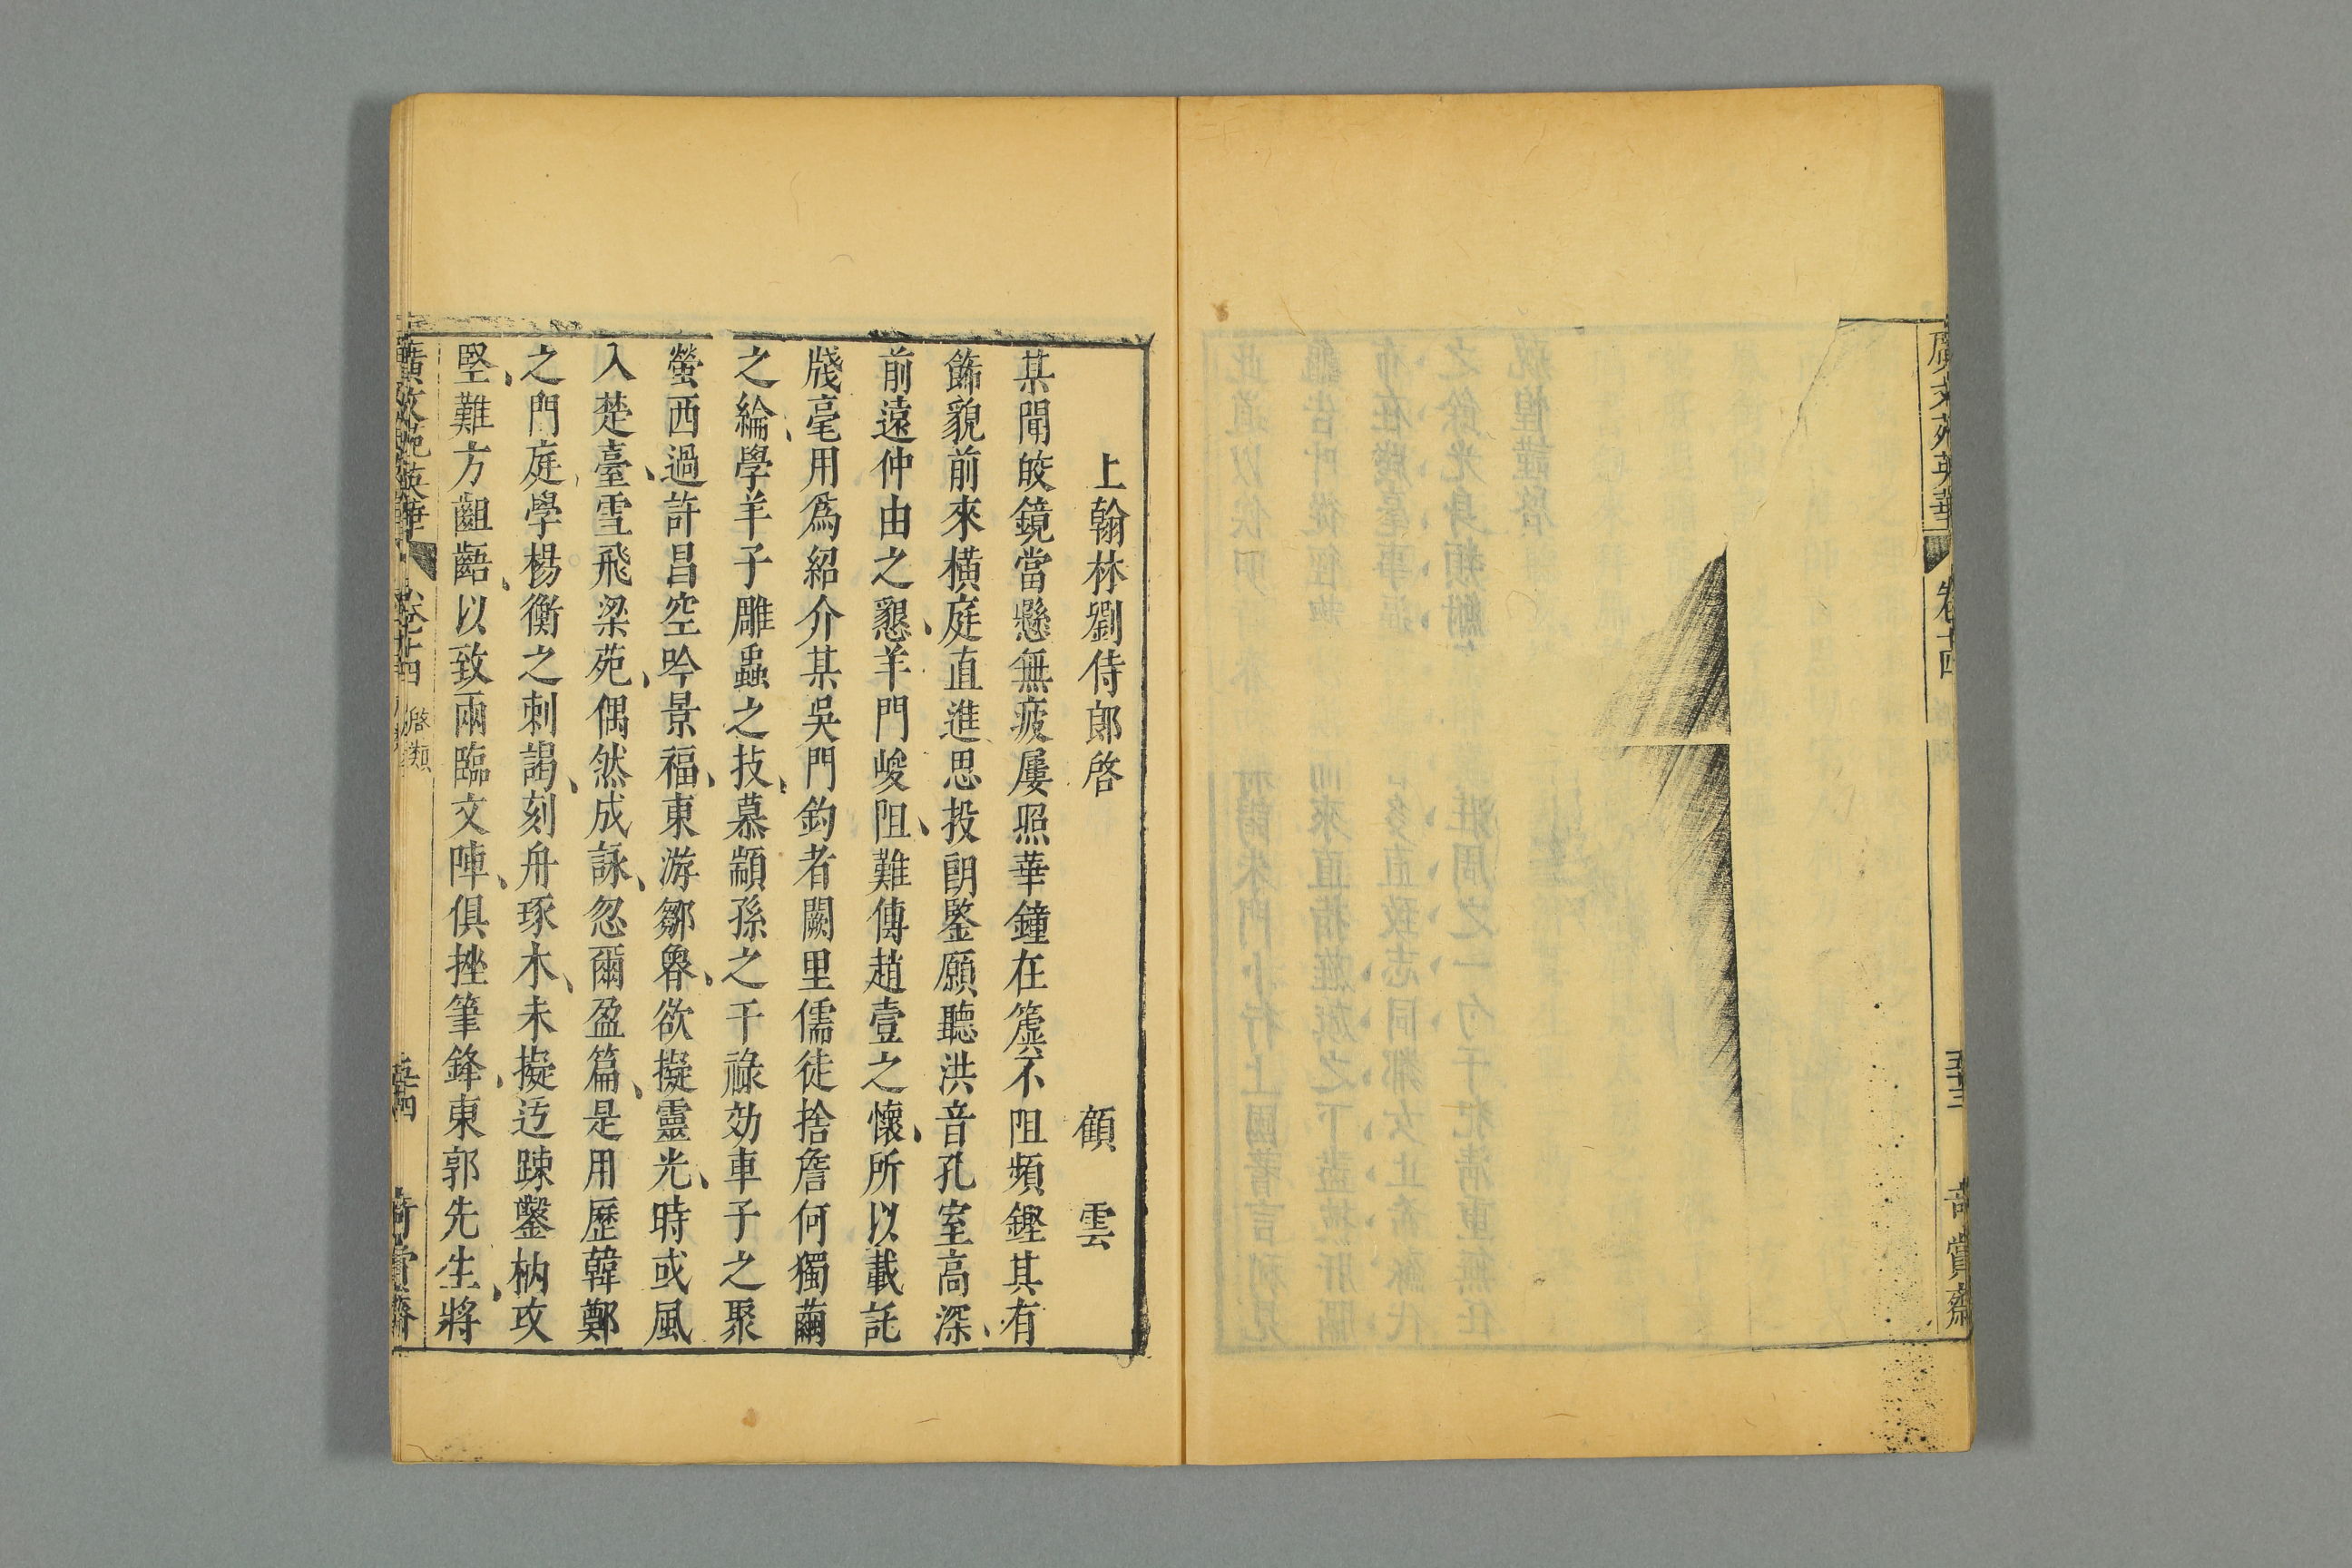 廣文苑英華 卷十四 五十三 奇賞齋
上翰林劉侍郎啓 顧雲
某聞皎鏡當懸無疲屢照華鐘在簴不阻頻鏗其有
飾貌前來橫庭直進思投朗鑒願聽洪音孔室高深
前遠仲由之懇羊門峻阻難傳趙壹之懷所以載託
牋毫用爲紹介某吳門釣者闕里儒徒捨詹何獨繭
之綸學羊子雕蟲之技慕顓孫之干祿効車子之聚
螢西過許昌空吟景福東游鄒魯欲擬靈光時或風
入楚臺雪飛梁苑偶然成詠忽爾盈篇是用歷韓鄭
之門庭學楊衡之刺謁刻舟琢木未擬迃踈鑿枘攻
堅難方齟齬以致兩臨文陣俱挫筆鋒東郭先生將
廣文苑英華 卷十四 啓類 五十四 奇賞齋